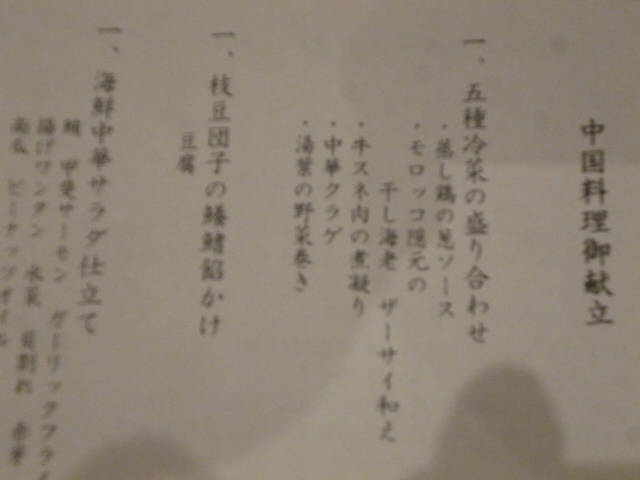 中国料理御献立
一、五種冷菜の盛り合わせ
・蒸し鶏の葱ソース
・モロッコ隠元の
干し海老 ザーサイ和え
・牛スネ肉の煮凝り
・中華クラゲ
・湯葉の野菜巻き
一、枝豆団子の鱶鰭餡かけ
豆腐
一、海鮮中華サラダ仕立て
鮪 甲斐サーモン ガーリックフライ
揚げワンタン 水菜 貝割れ 赤芽
南瓜 ピーナッツオイル